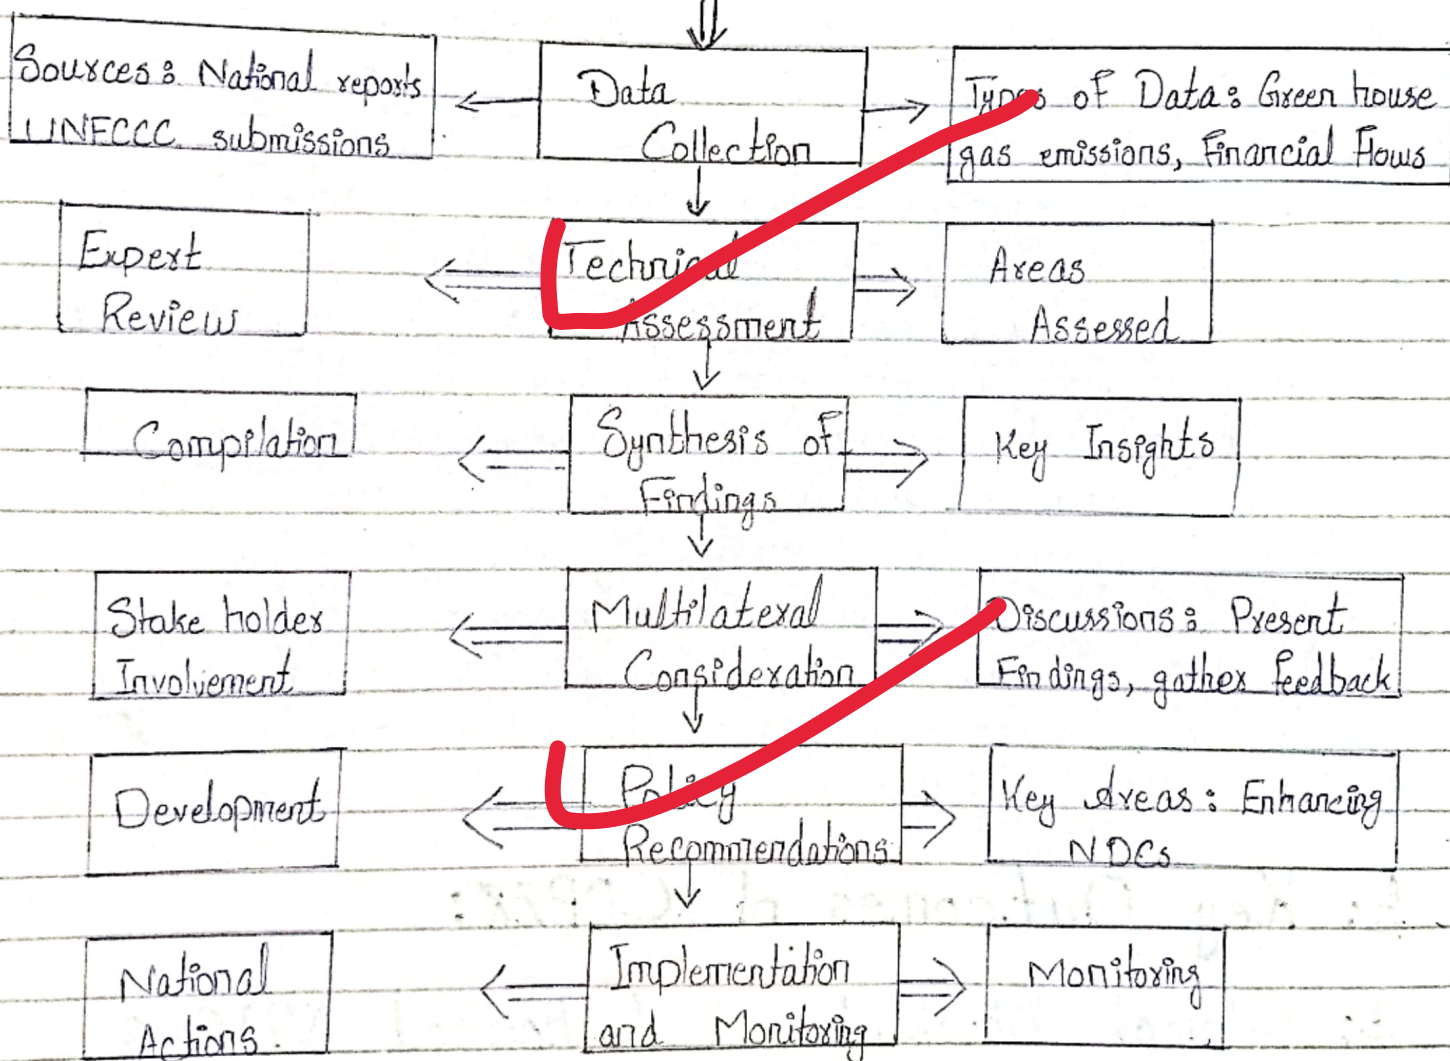 Sources: National reports
UNFCCC submissions
Data
Collection
Types of Data: Green house
gas emissions, Financial Flows
Expert
Review
Technical
Assessment
Areas
Assessed
Compilation
Synthesis of
Findings
Key Insights
Stake holder
Involvement
Multilateral
Consideration
Discussions: Present
Findings, gather feedback
Development
Policy
Recommendations
Key Areas: Enhancing
NDCs
National
Actions.
Implementation
and Monitoring
Monitoring